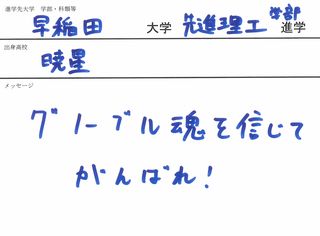 進学先大学 学部・科類等
早稲田 大学 先進理工 学部 進学
出身高校
暁星
メッセージ
グノーブル魂を信じて
がんばれ!